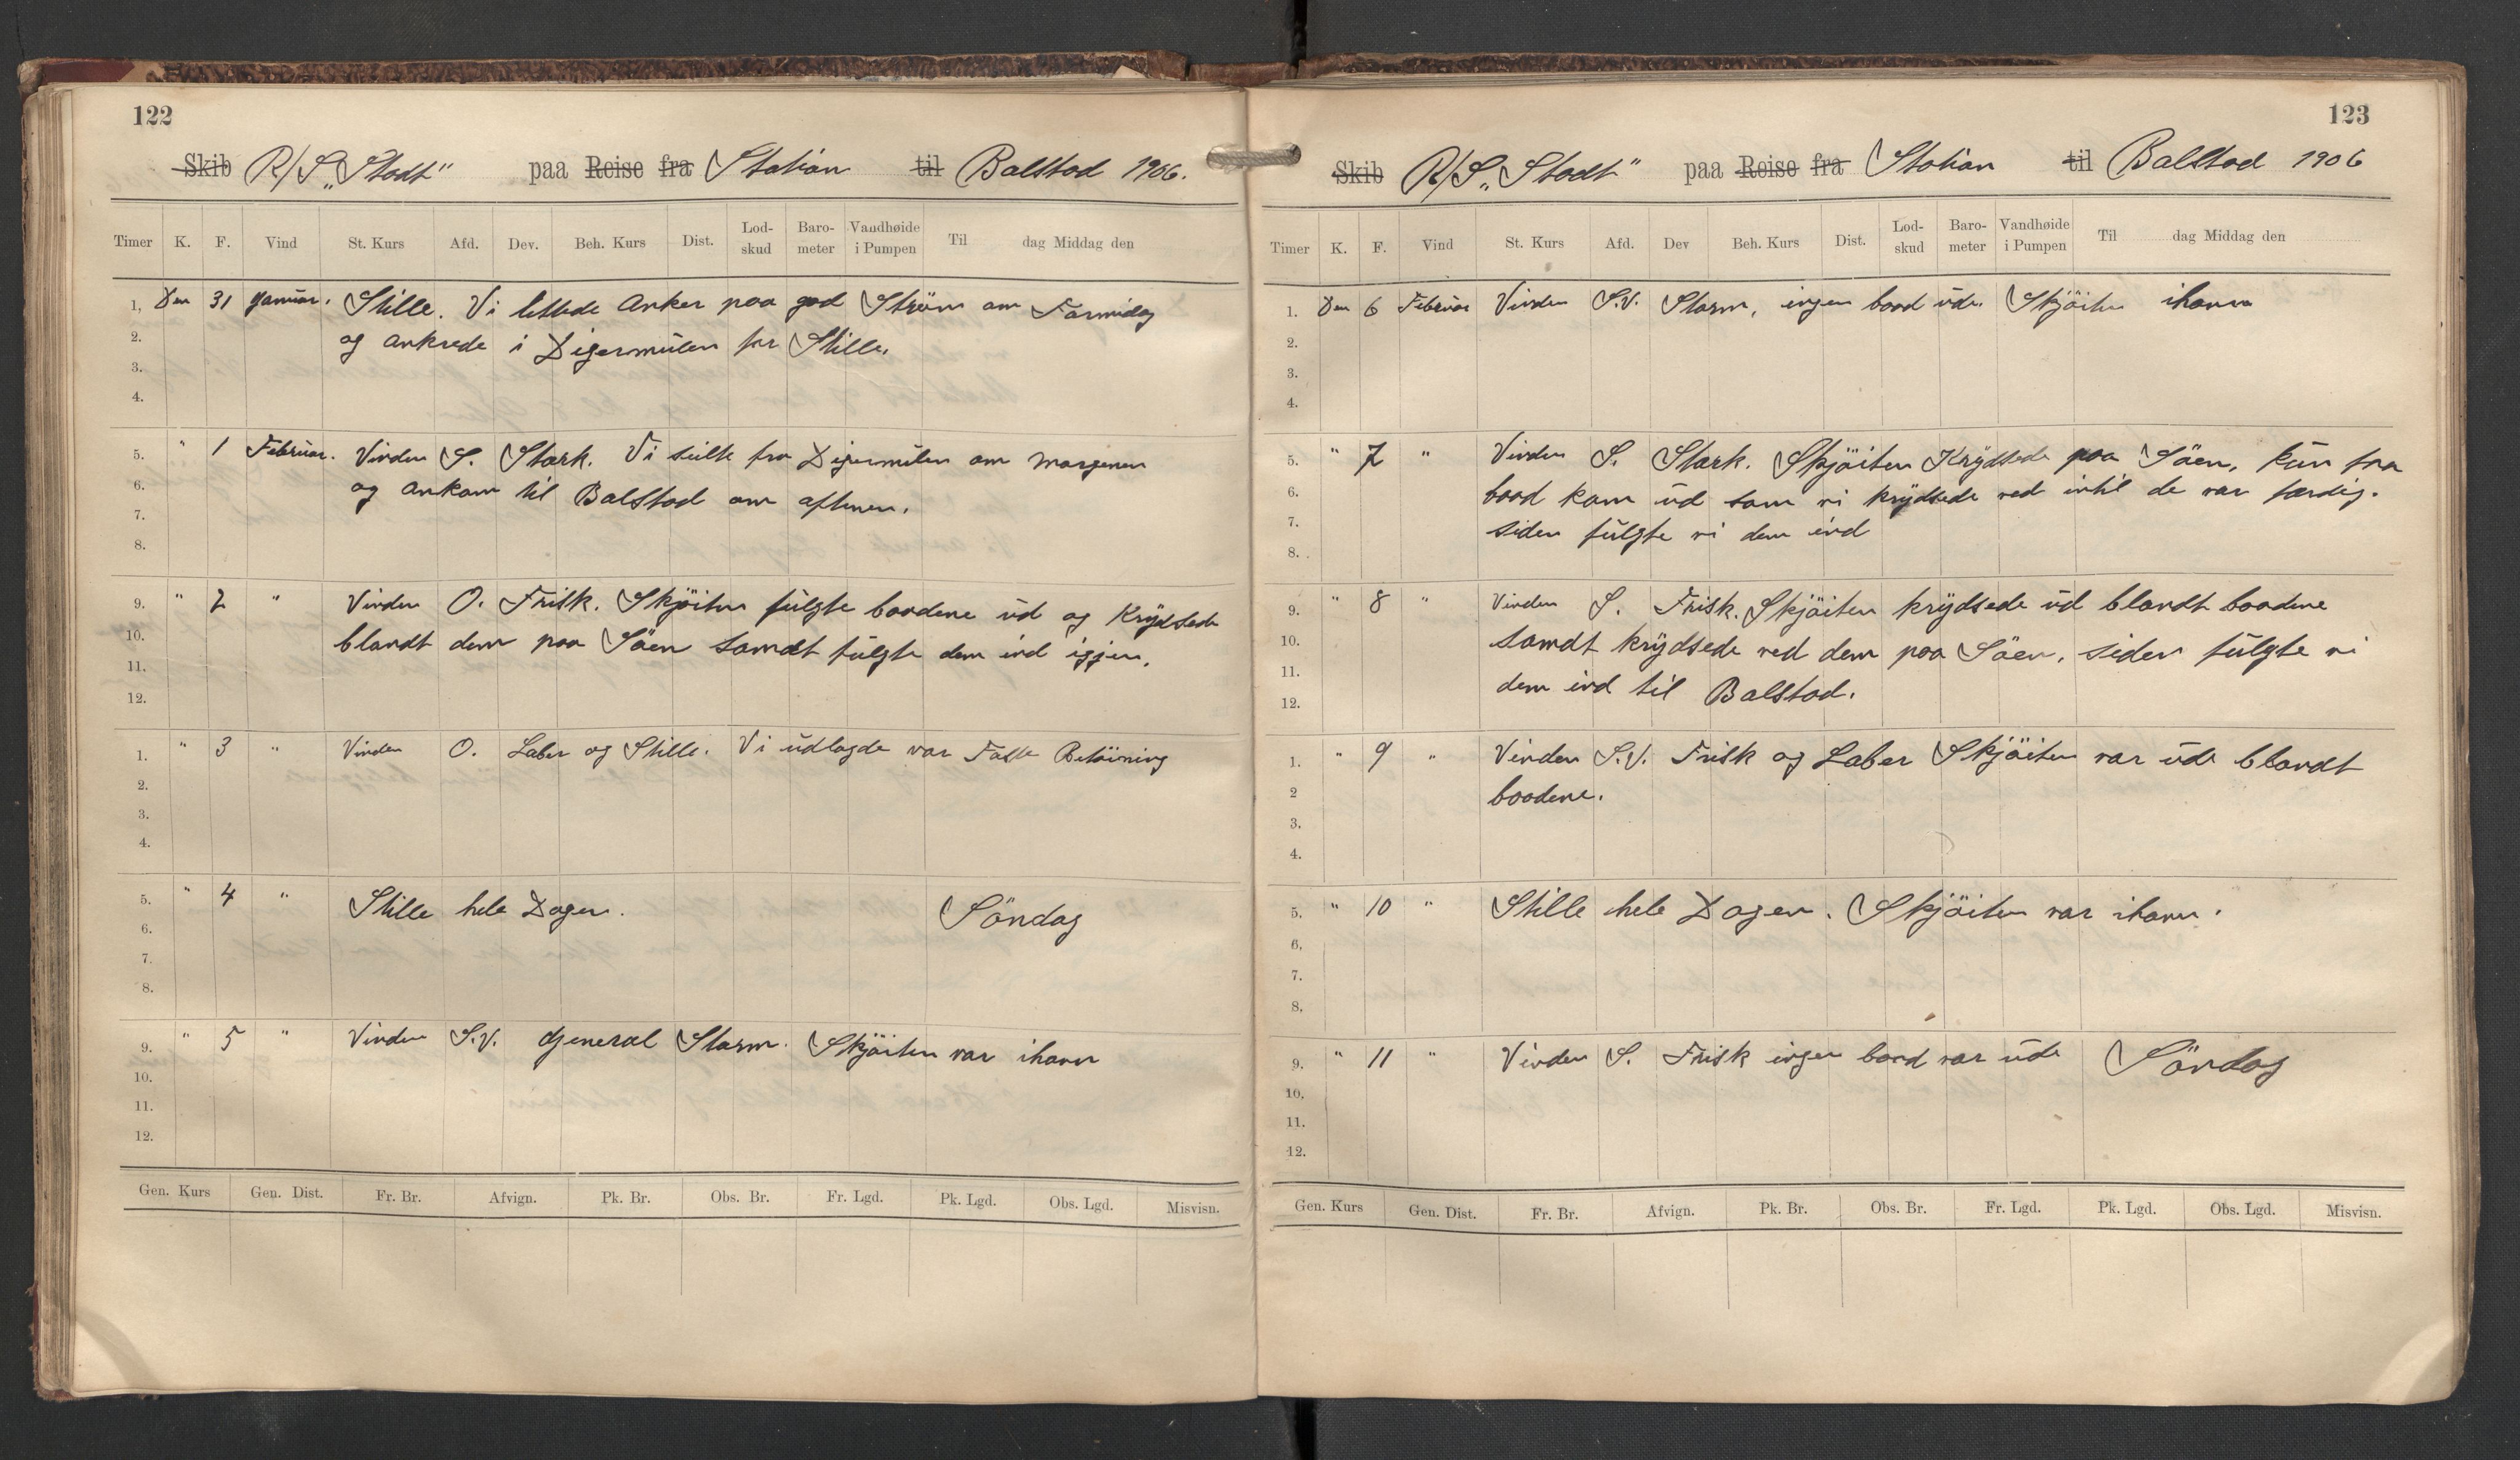 122
Skib R/S „Stadt“ paa Reise fra Station til Balstad 1906.
Timer K. F. Vind St. Kurs Afd. Dev. Beh. Kurs Dist. Lod-skud Baro-meter Vandhøide i Pumpen Til dag Middag den
1. Den 31 Januar. Stille. Vi lettede Anker paa god Ström om Formidag
2. og ankrede i Digermulen for Stille.
3.
4.
5. " 1 Februar. Vinden S. Stærk. Vi seilte fra Digermulen om morgenen
6. og ankom til Balstad om aftenen.
7.
8.
9. " 2 " Vinden O. Frisk. Skjöiten fulgte baadene ud og Krydsede
10. blandt dem paa Söen samdt fulgte dem ind igjen.
11.
12.
1. " 3 " Vinden O. Laber og Stille. Vi udlagde vor Faste Betöining
2.
3.
4.
5. " 4 " Stille hele Dagen. Söndag
6.
7.
8.
9. " 5 " Vinden S.V. General Storm. Skjöiten var ihavn
10.
11.
12.
Gen. Kurs Gen. Dist. Fr. Br. Afvign. Pk. Br. Obs. Br. Fr. Lgd. Pk. Lgd. Obs. Lgd. Misvisn.
123
Skib R/S „Stadt“ paa Reise fra Station til Balstad 1906
Timer K. F. Vind St. Kurs Afd. Dev Beh. Kurs Dist. Lod-skud Baro-meter Vandhøide i Pumpen Til dag Middag den
1. Den 6 Februar Vinden S.V. Storm, ingen baad ude. Skjöiten ihavn
2.
3.
4.
5. " 7 " Vinden S. Stærk. Skjöiten Krydsede paa Söen, kun faa
6. baad kom ud som vi krydsede ved intil de var færdig.
7. siden fulgte vi dem ind
8.
9. " 8 " Vinden S. Frisk. Skjöiten krydsede ud blandt baadene
10. samdt krydsede ved dem paa Söen, siden fulgte vi
11. dem ind til Balstad.
12.
1. " 9 " Vinden S.V. Frisk og Laber Skjöiten var ude blandt
2 baadene.
3.
4.
5. " 10 " Stille hele Dagen. Skjöiten var ihavn.
6.
7.
8.
9. " 11 " Vinden S. Frisk ingen baad var ude Söndag
10.
11.
12.
Gen. Kurs Gen. Dist. Fr. Br. Afvign. Pk. Br. Obs. Br. Fr. Lgd. Pk. Lgd. Obs. Lgd. Misvisn.